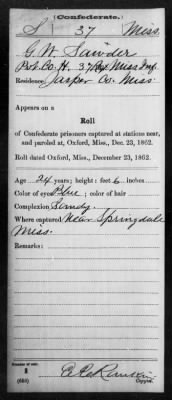 (Confederate.)
S 37 Miss.
G. W. Sawder
Pvt. Co. H. 37 Reg Miss Inf.
Residence, Jasper Co. Miss.
Appears on a
Roll
of Confederate prisoners captured at stations near,
and paroled at, Oxford, Miss., Dec. 23, 1862.
Roll dated Oxford, Miss., December 23, 1862.
Age 24 years; height: feet 6 inches
Color of eyes Blue; color of hair
Complexion Sandy.
Where captured Near Springdale
Miss.
Remarks:
Number of roll:
(639)
Copyist.